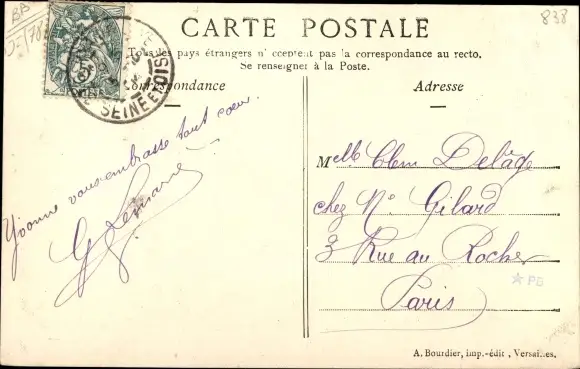 BB
838
CARTE POSTALE
Tous les pays étrangers n'acceptent pas la correspondance au recto.
Se renseigner à la Poste.
Correspondance
Adresse
SEINE ET OISE
Yvonne vous embrasse tout cœur.
G Lemarié
Melle Clem Delage
chez Mr. Gilard
3 Rue du Rocher
Paris
*PB
A. Bourdier, imp.-édit, Versailles.